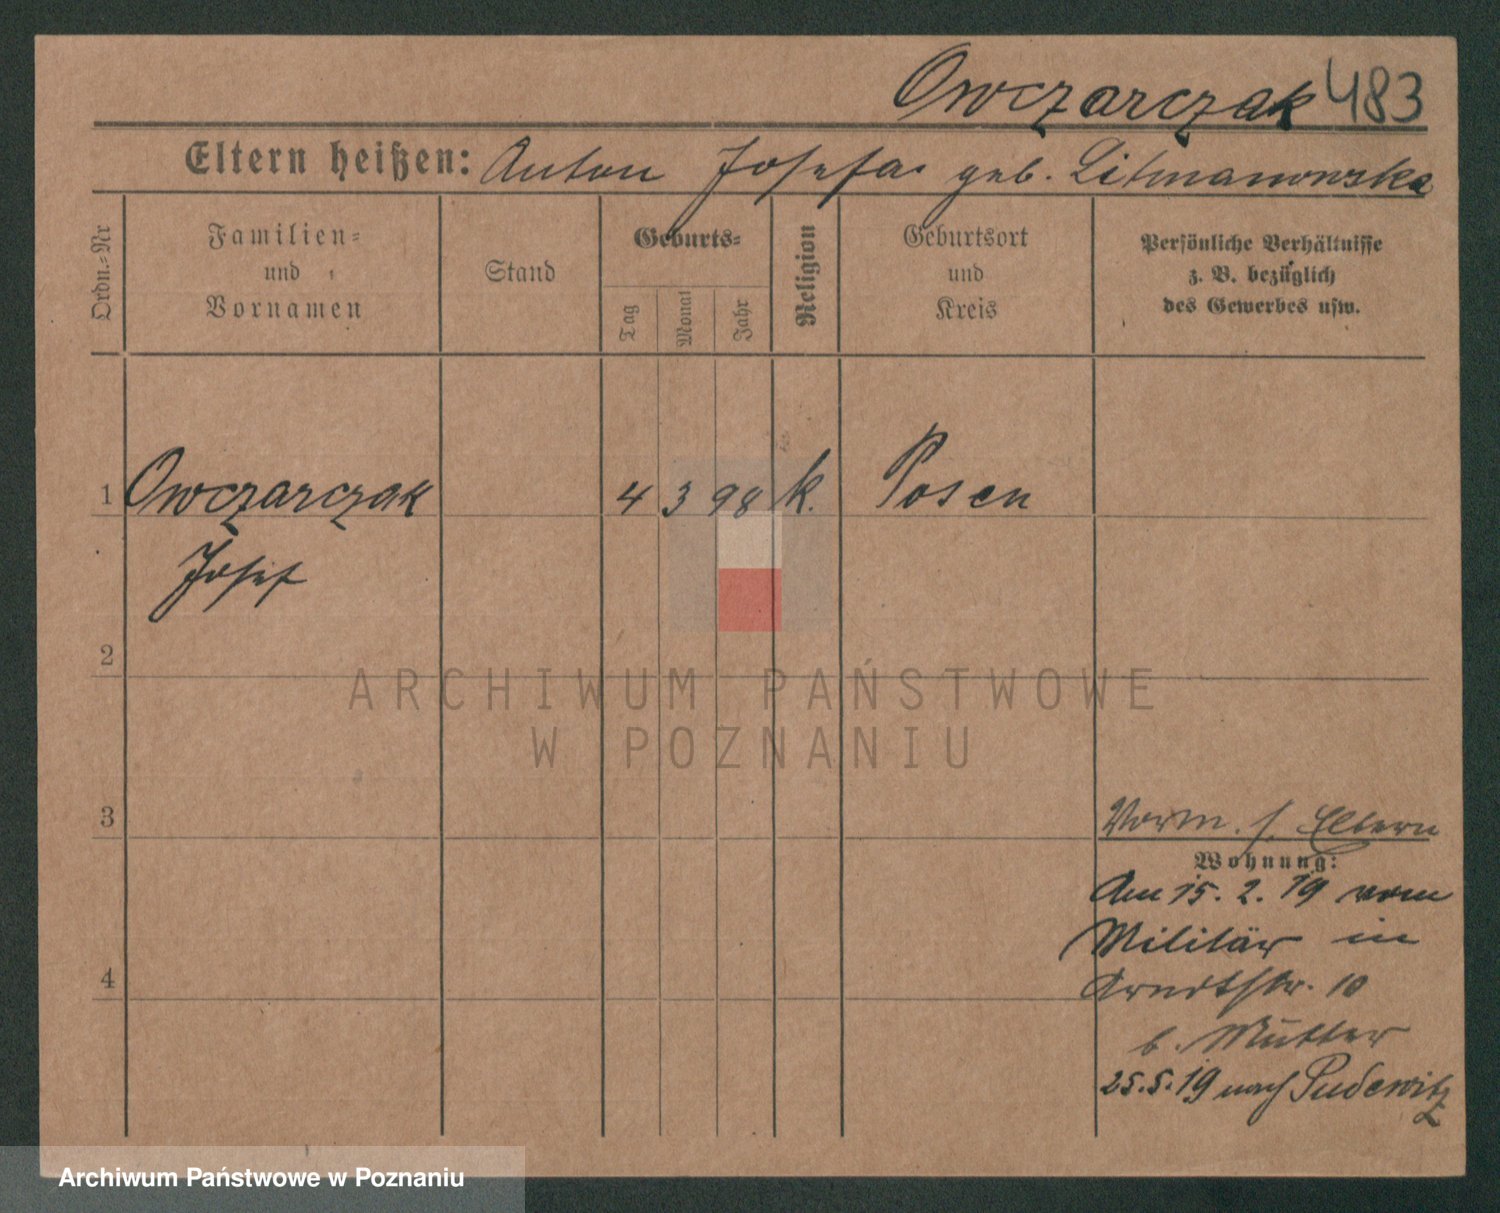 Owczarczak 483
Eltern heißen: Anton Josefa geb. Litmanowska
Ordn.-Nr
Familien-
und
Vornamen
Stand
Geburts-
Tag
Monat
Jahr
Religion
Geburtsort
und
Kreis
Persönliche Verhältnisse
z. B. bezüglich
des Gewerbes usw.
1 Owczarczak 4 3 98 k. Posen
Josef
2
3
4
Vorm. s. Eltern
Wohnung:
Am 15. 2. 19 vom
Militär in
Arndtstr. 10
b. Mutter
25.5.19 nach Pudewitz
ARCHIWUM PAŃSTWOWE
W POZNANIU
Archiwum Państwowe w Poznaniu